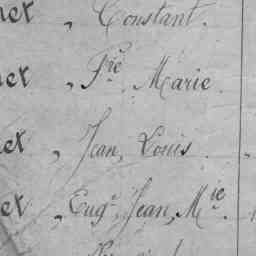 net , Constant.
net , Fçie Marie
net , Jean, Louis
et , Eugne Jean, Mie